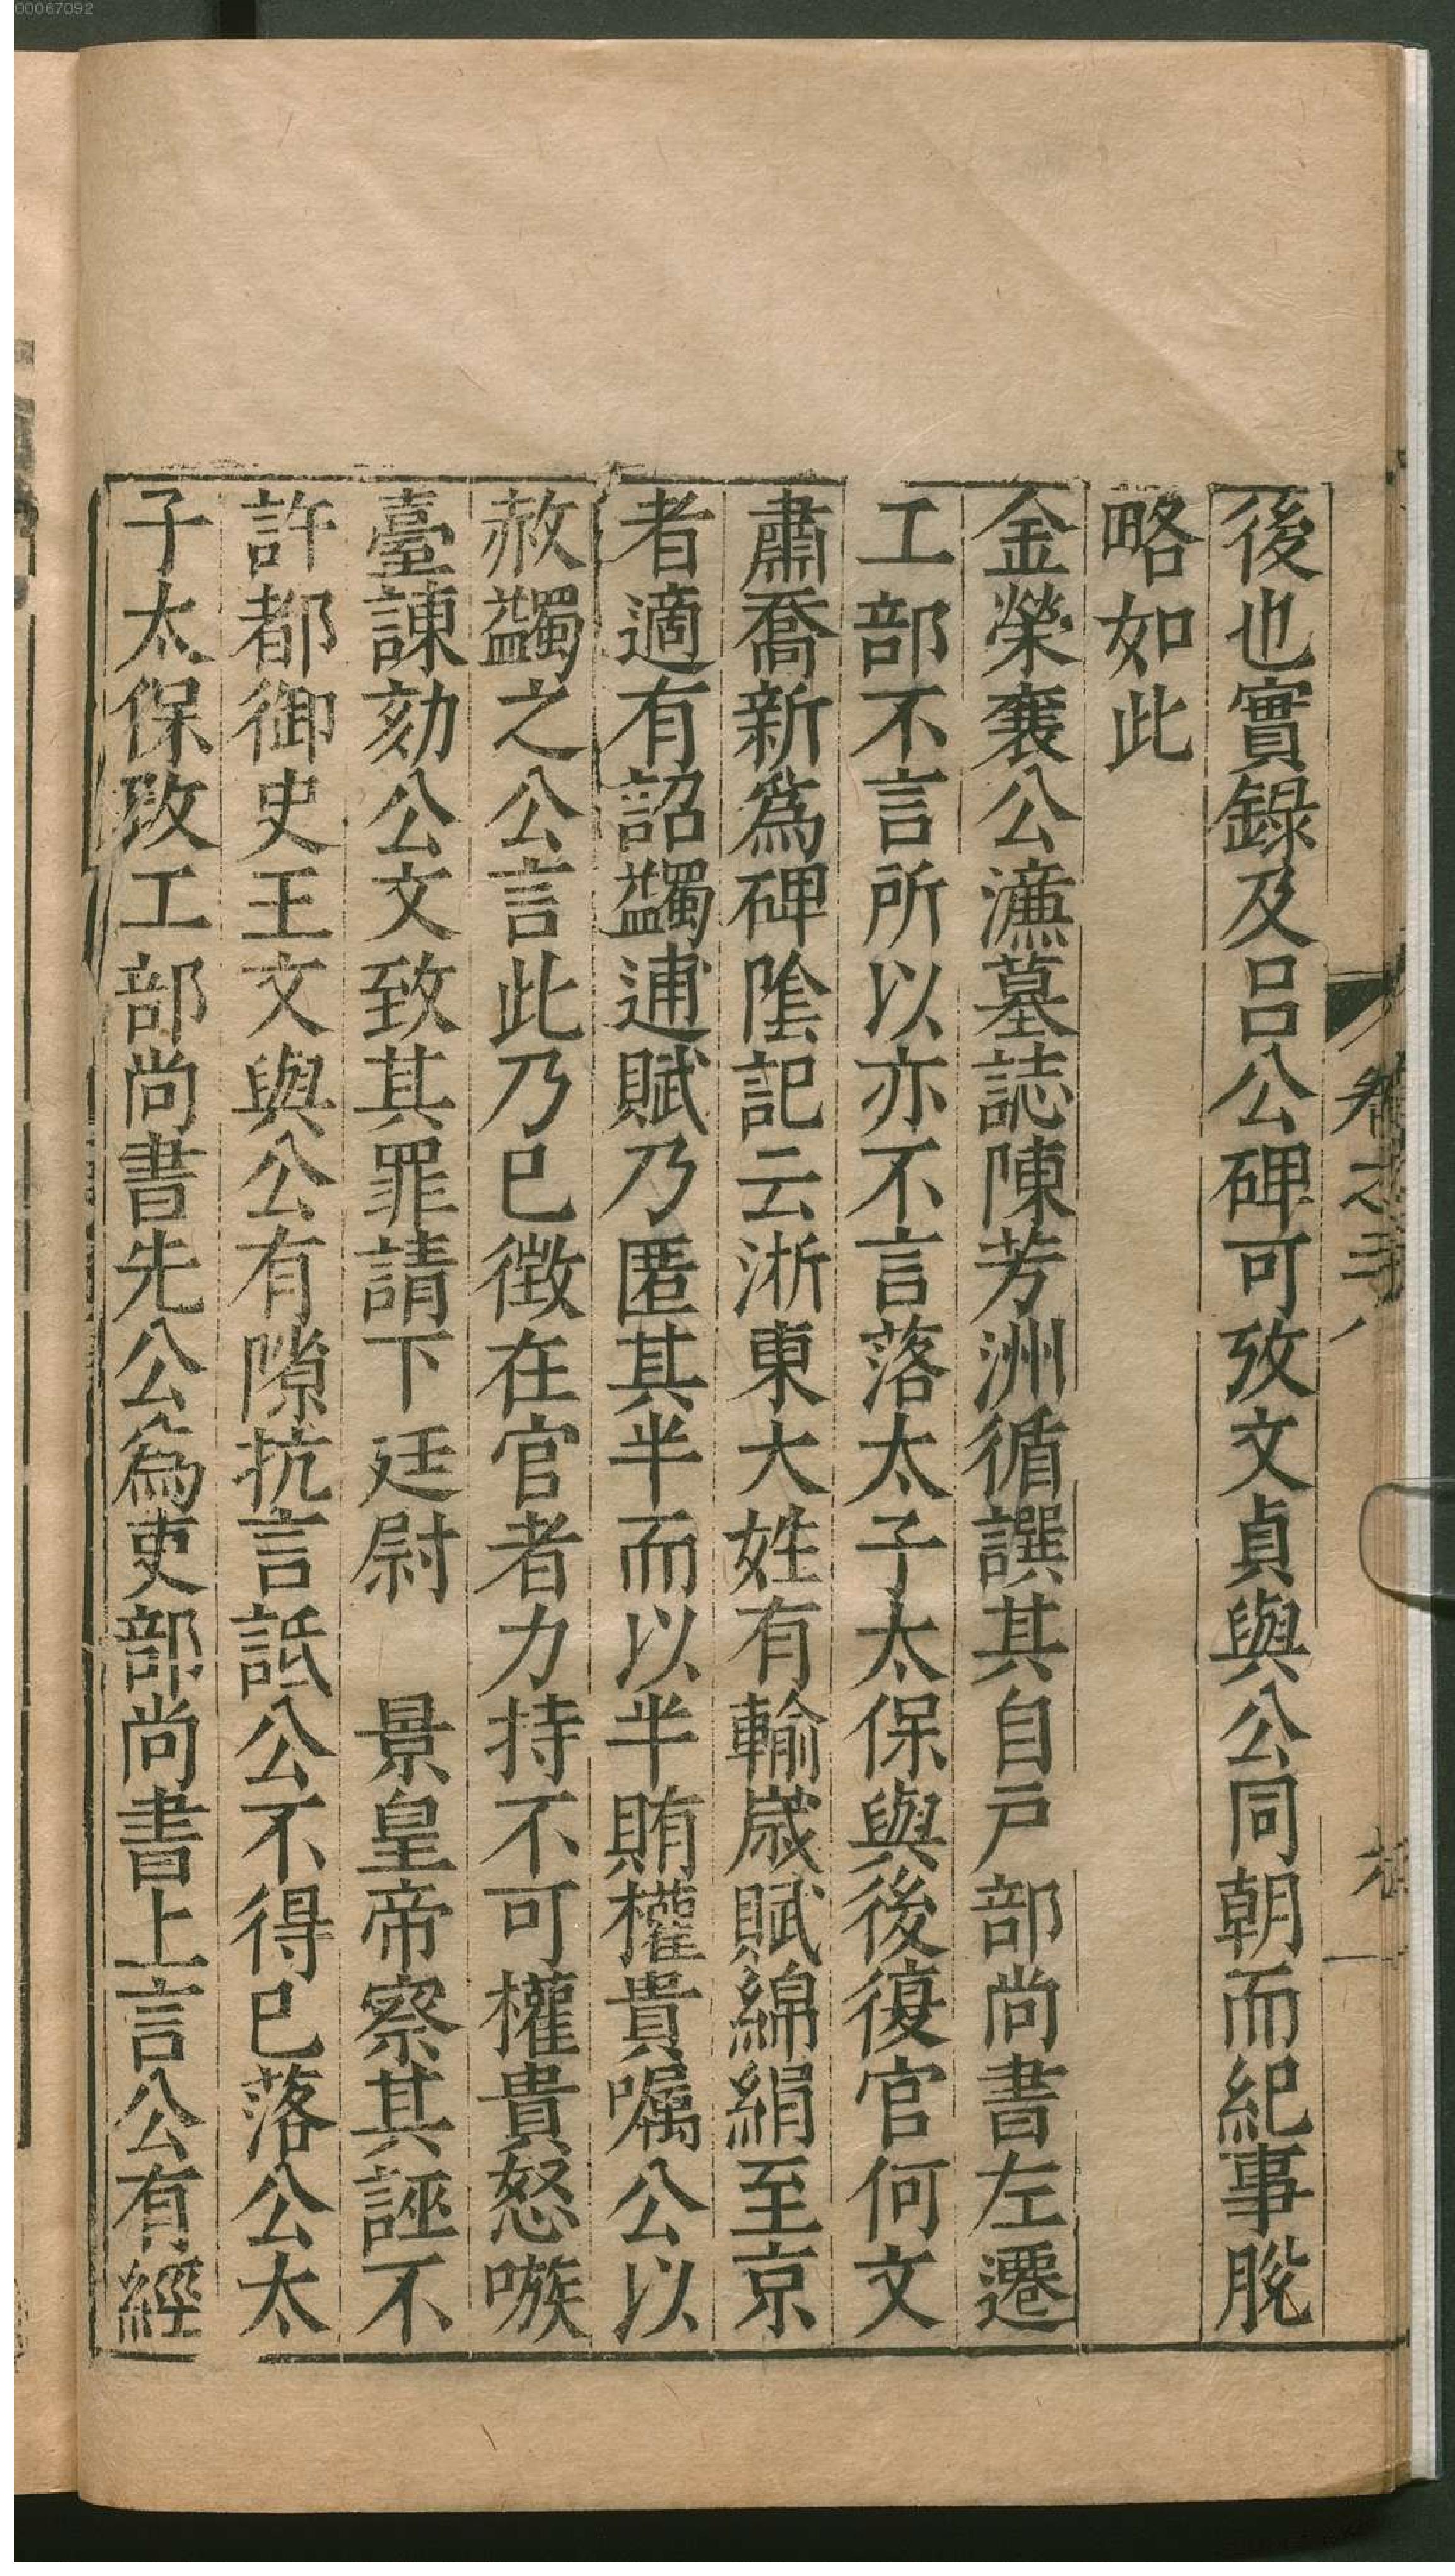 00067092
後也實錄及呂公碑可攷文貞與公同朝而紀事脫
略如此
金榮襄公濂墓誌陳芳洲循譔其自戶部尚書左遷
工部不言所以亦不言落太子太保與後復官何文
肅喬新爲碑陰記云浙東大姓有輸歲賦綿絹至京
者適有詔蠲逋賦乃匿其半而以半賄權貴囑公以
赦蠲之公言此乃已徴在官者力持不可權貴怒嗾
臺諫劾公文致其罪請下廷尉　景皇帝察其誣不
許都御史王文與公有隙抗言詆公不得已落公太
子太保改工部尚書先公爲吏部尚書上言公有經
卷之三